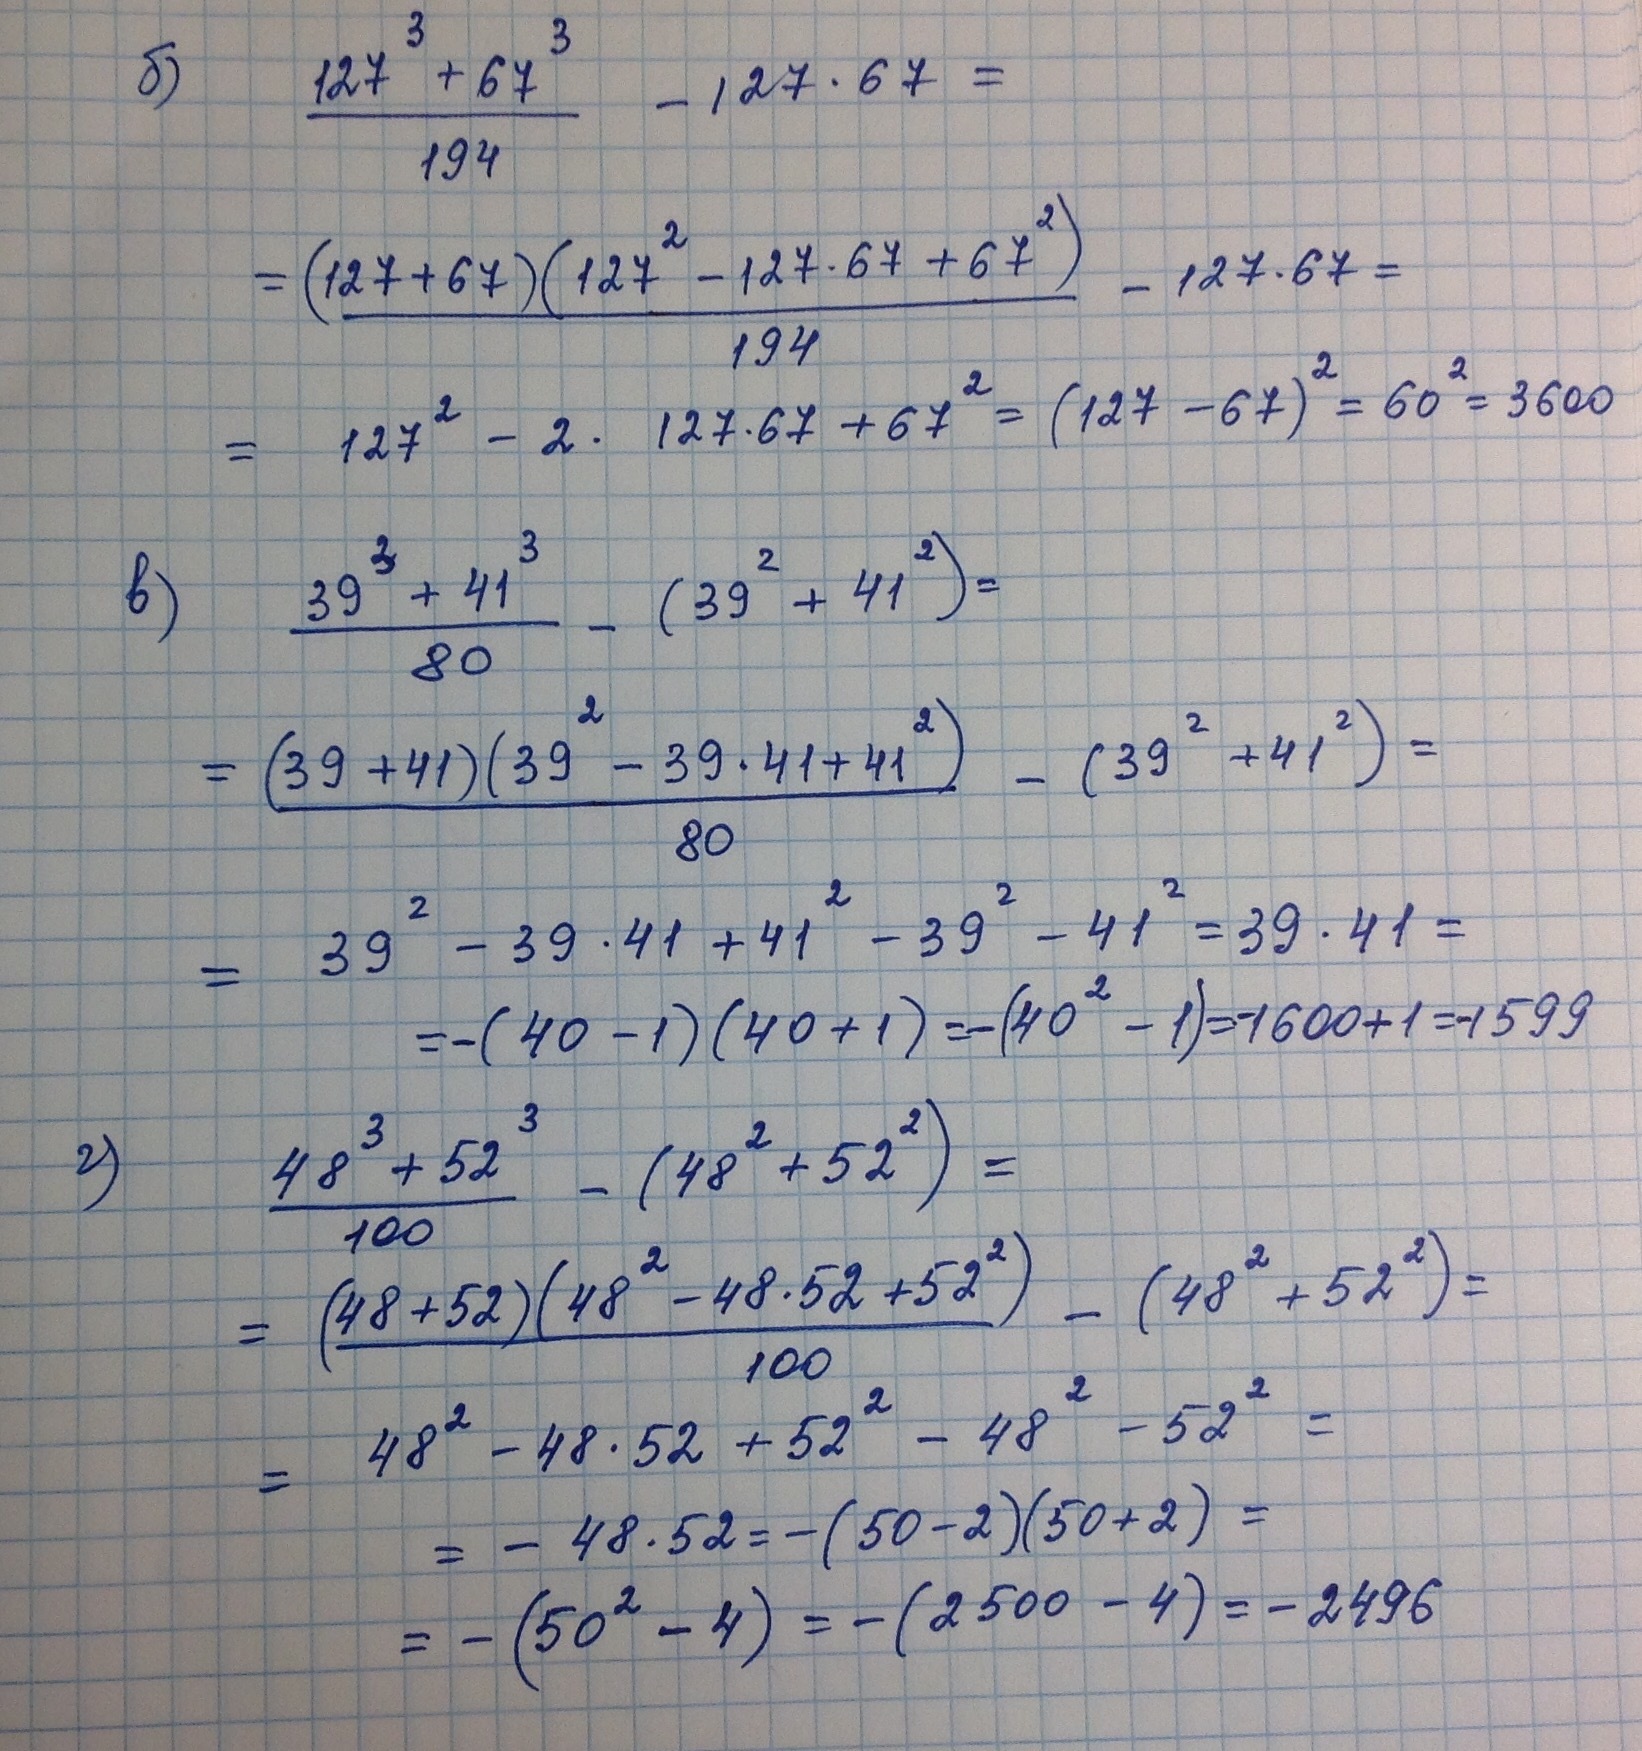 б) (127³ + 67³)/194 − 127·67 =
= (127+67)(127² − 127·67 + 67²)/194 − 127·67 =
= 127² − 2· 127·67 + 67² = (127 − 67)² = 60² = 3600
в) (39³ + 41³)/80 − (39² + 41²) =
= (39 + 41)(39² − 39·41 + 41²)/80 − (39² + 41²) =
= 39² − 39·41 + 41² − 39² − 41² = 39·41 =
= −(40 − 1)(40 + 1) = −(40² − 1) = −1600 + 1 = −1599
г) (48³ + 52³)/100 − (48² + 52²) =
= (48 + 52)(48² − 48·52 + 52²)/100 − (48² + 52²) =
= 48² − 48·52 + 52² − 48² − 52² =
= − 48·52 = −(50 − 2)(50 + 2) =
= −(50² − 4) = −(2500 − 4) = −2496